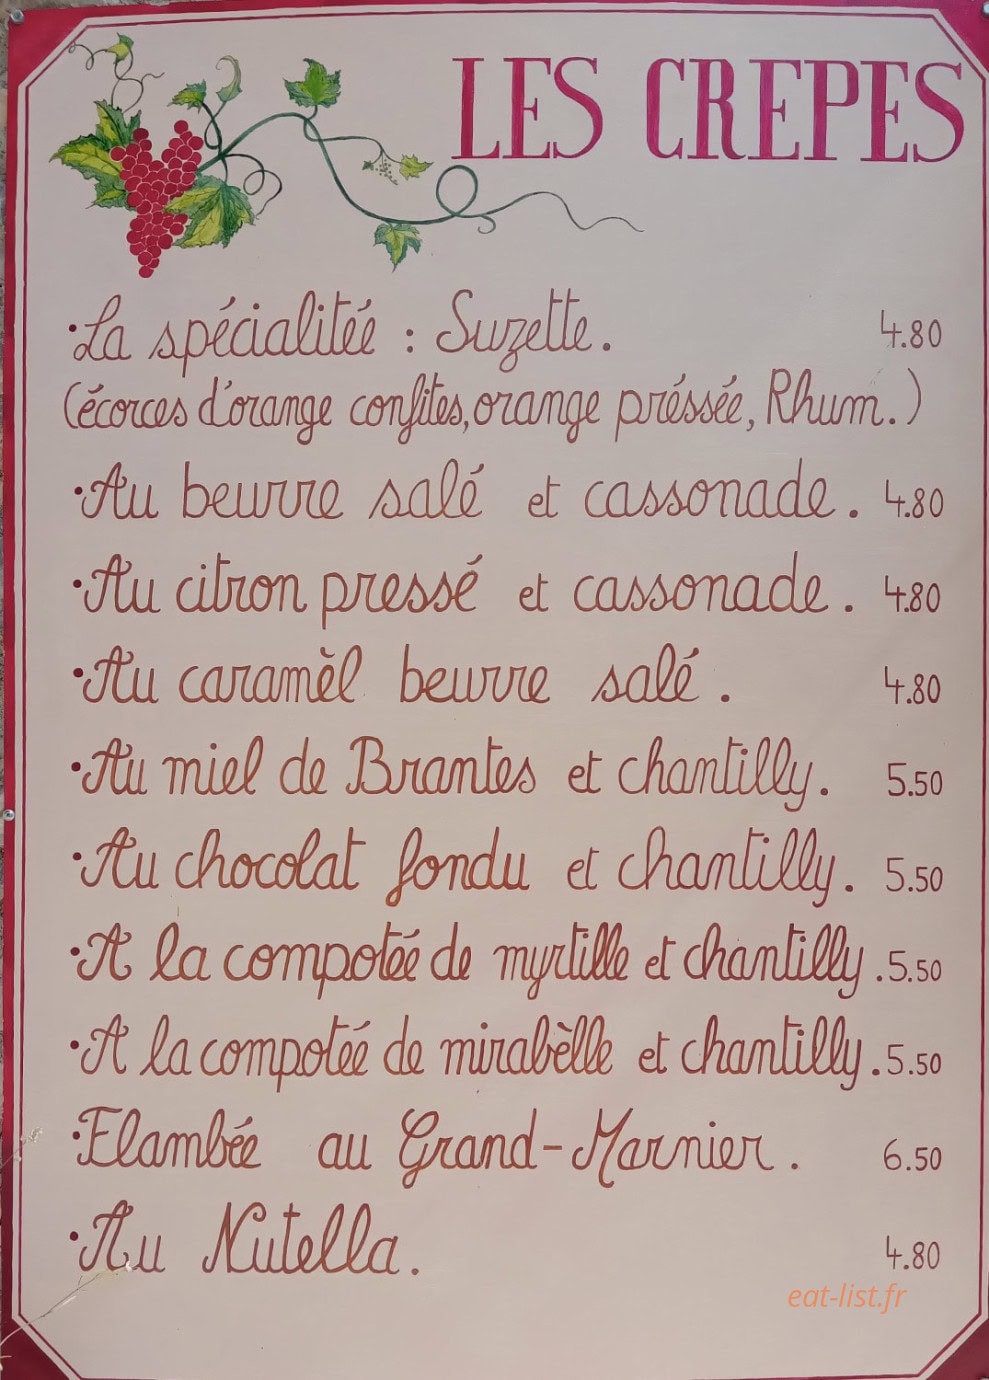 LES CREPES
•La spécialitéé : Suzette. 4.80
(écorces d'orange confites, orange préssée, Rhum.)
•Au beurre salé et cassonade. 4.80
•Au citron pressé et cassonade. 4.80
•Au caramèl beurre salé. 4.80
•Au miel de Brantes et chantilly. 5.50
•Au chocolat fondu et chantilly. 5.50
•A la compotéé de myrtille et chantilly. 5.50
•A la compotéé de mirabèlle et chantilly. 5.50
•Flambée au Grand-Marnier. 6.50
•Au Nutella. 4.80
eat-list.fr